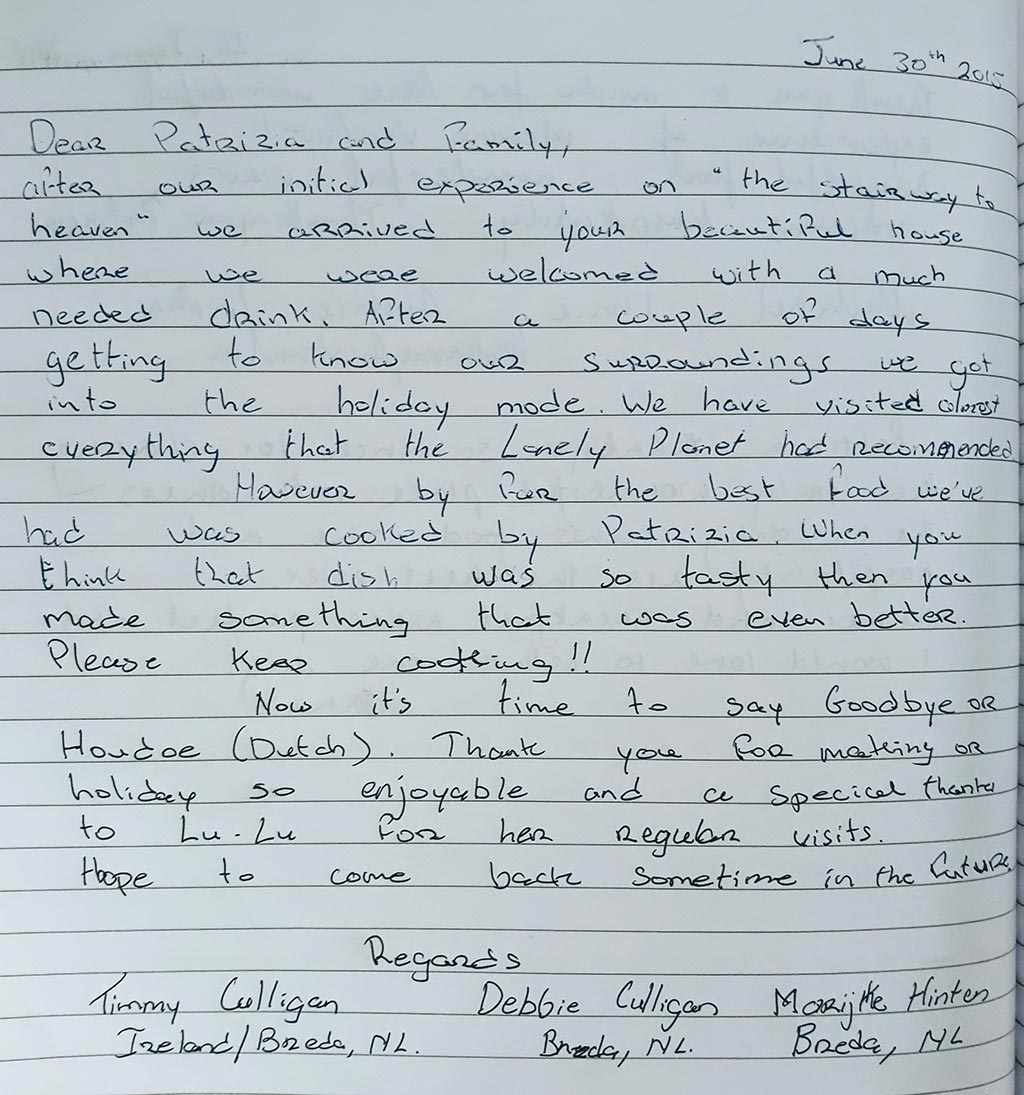 June 30th 2015
Dear Patrizia and Family,
after our initial experience on "the stairway to
heaven" we arrived to your beautiful house
where we were welcomed with a much
needed drink. After a couple of days
getting to know our surroundings we got
into the holiday mode. We have visited almost
everything that the Lonely Planet had recommended
However by far the best food we've
had was cooked by Patrizia. When you
think that dish was so tasty then you
made something that was even better.
Please keep cooking!!
Now it's time to say Goodbye or
Houdoe (Dutch). Thank you for making or
holiday so enjoyable and a special thanks
to Lu-Lu for her regular visits.
Hope to come back sometime in the future.
Regards
Timmy Culligan Debbie Culligan Marijke Hinten
Ireland/Breda, NL. Breda, NL. Breda, NL